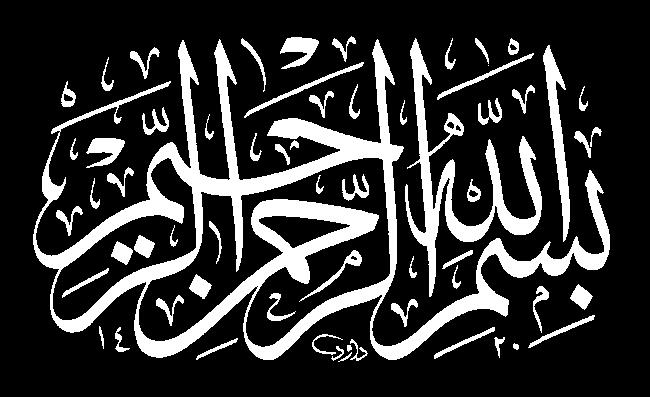 بِسْمِ اللهِ الرَّحْمٰنِ الرَّحِيْمِ
داود
١٤ ٢٠